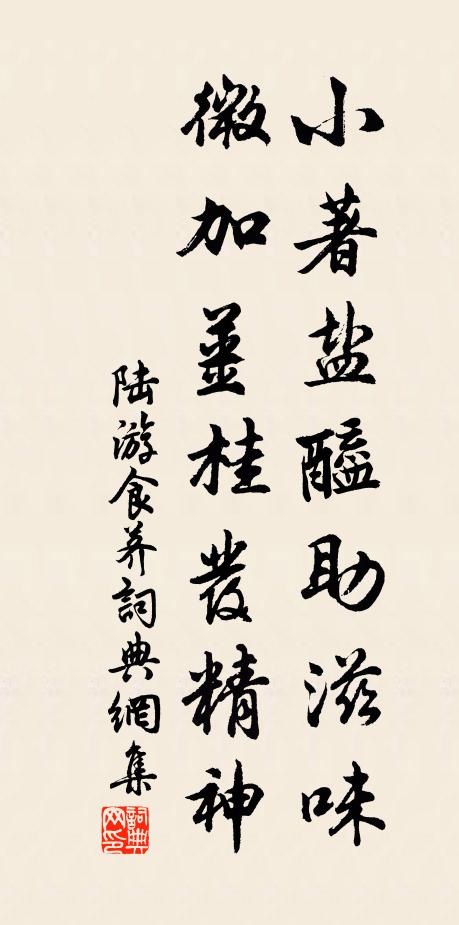 小著盐醯助滋味
微加薑桂發精神
陆游食荠詞典網集
詞典
网印